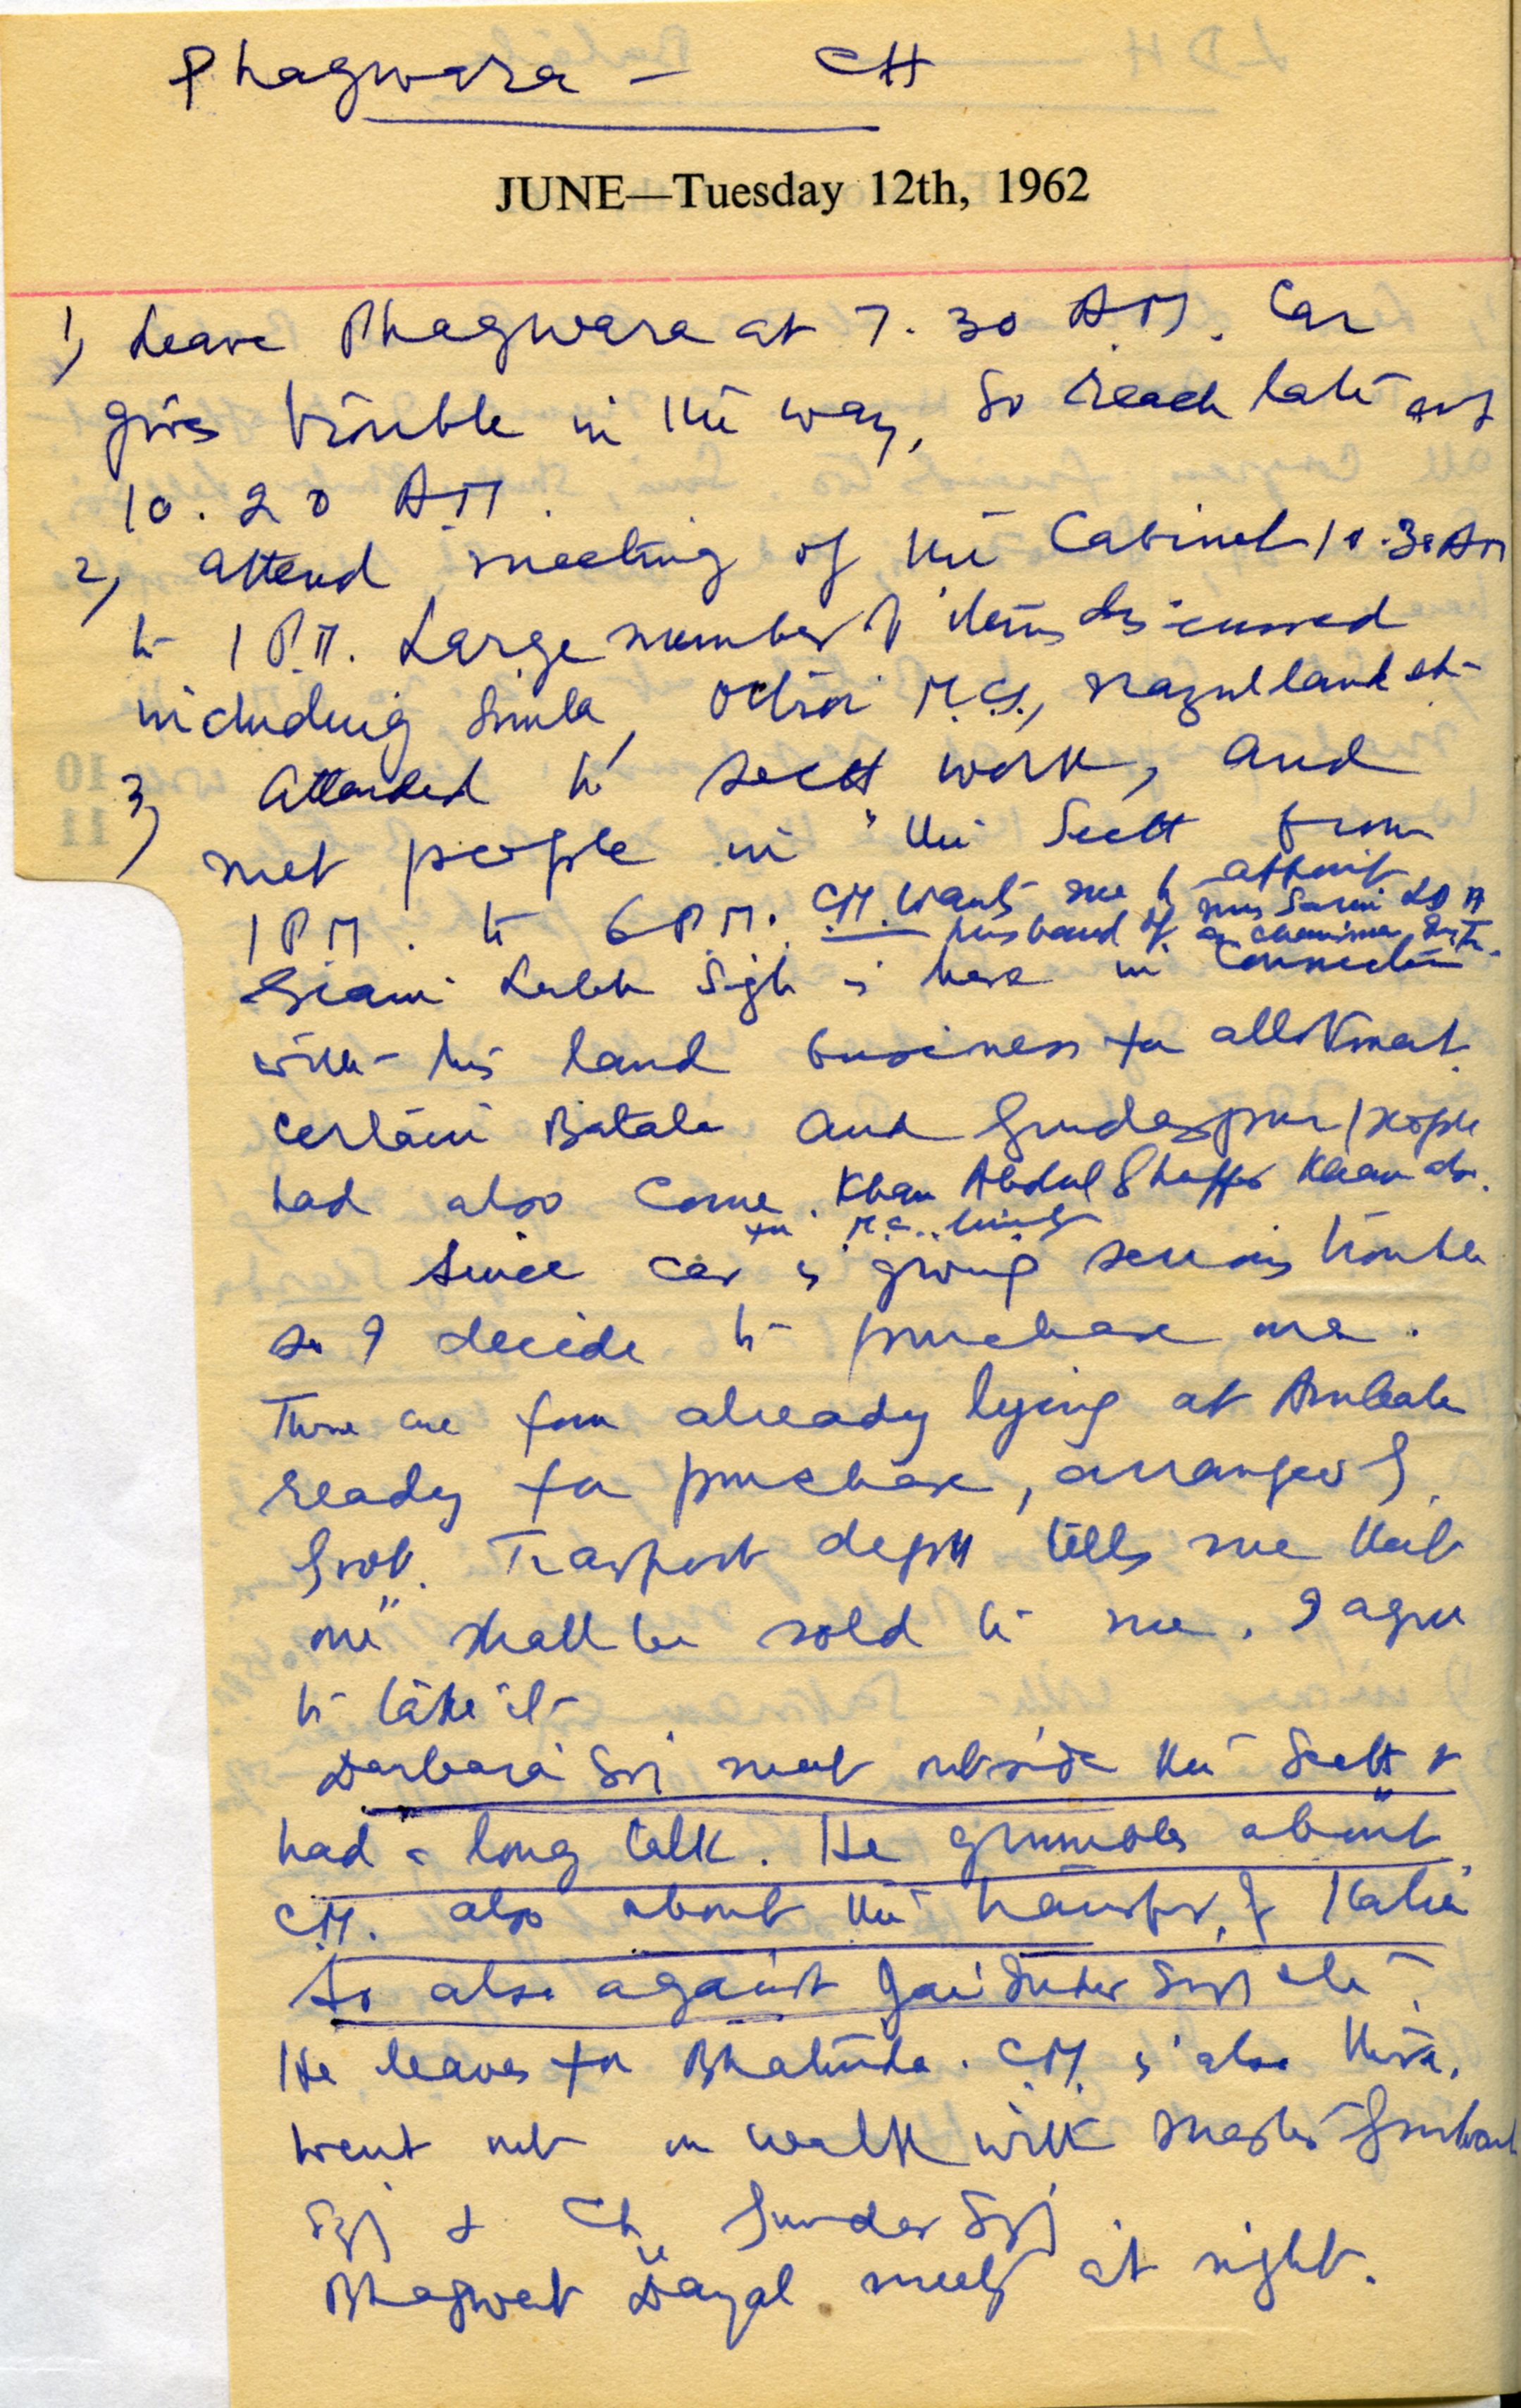 Phagwara - CH
JUNE—Tuesday 12th, 1962
1) Leave Phagwara at 7.30 A.M. Car
gives trouble in the way, so reach late at
10.20 AM.
2) Attend meeting of the Cabinet 10.30 AM
to 1 P.M. Large number of items discussed
including Simla, Octroi M.Cs., Nazul land etc
3) Attended to Sectt work, and
met people in the Sectt from
1 P.M. to 6 P.M. C.M. wants me to appoint
husband of Mrs Sarin LDH as chairman
Giani Labh Singh is here in connection
with his land business for allotment.
Certain Batala and Gurdaspur people
had also come. Khan Abdul Ghaffar Khan also.
for M.C. limits
Since car is giving serious trouble
so I decide to purchase one.
There are four already lying at Ambala
ready for purchase, arranged
Govt. Trasport deptt tells me that
one shall be sold to me. I agree
to take it
Darbara Sgj meet outside the Sectt &
had a long talk. He grumbles about
C.M. also about the transfer of Kalia
So also against Jai Inder Sgj etc.
He leaves for Bhatinda. C.M. is also there.
Went out on walk with Master Gurbant
Sgj & Ch. Sunder Sgj
Bhagwat Dayal meets at night.